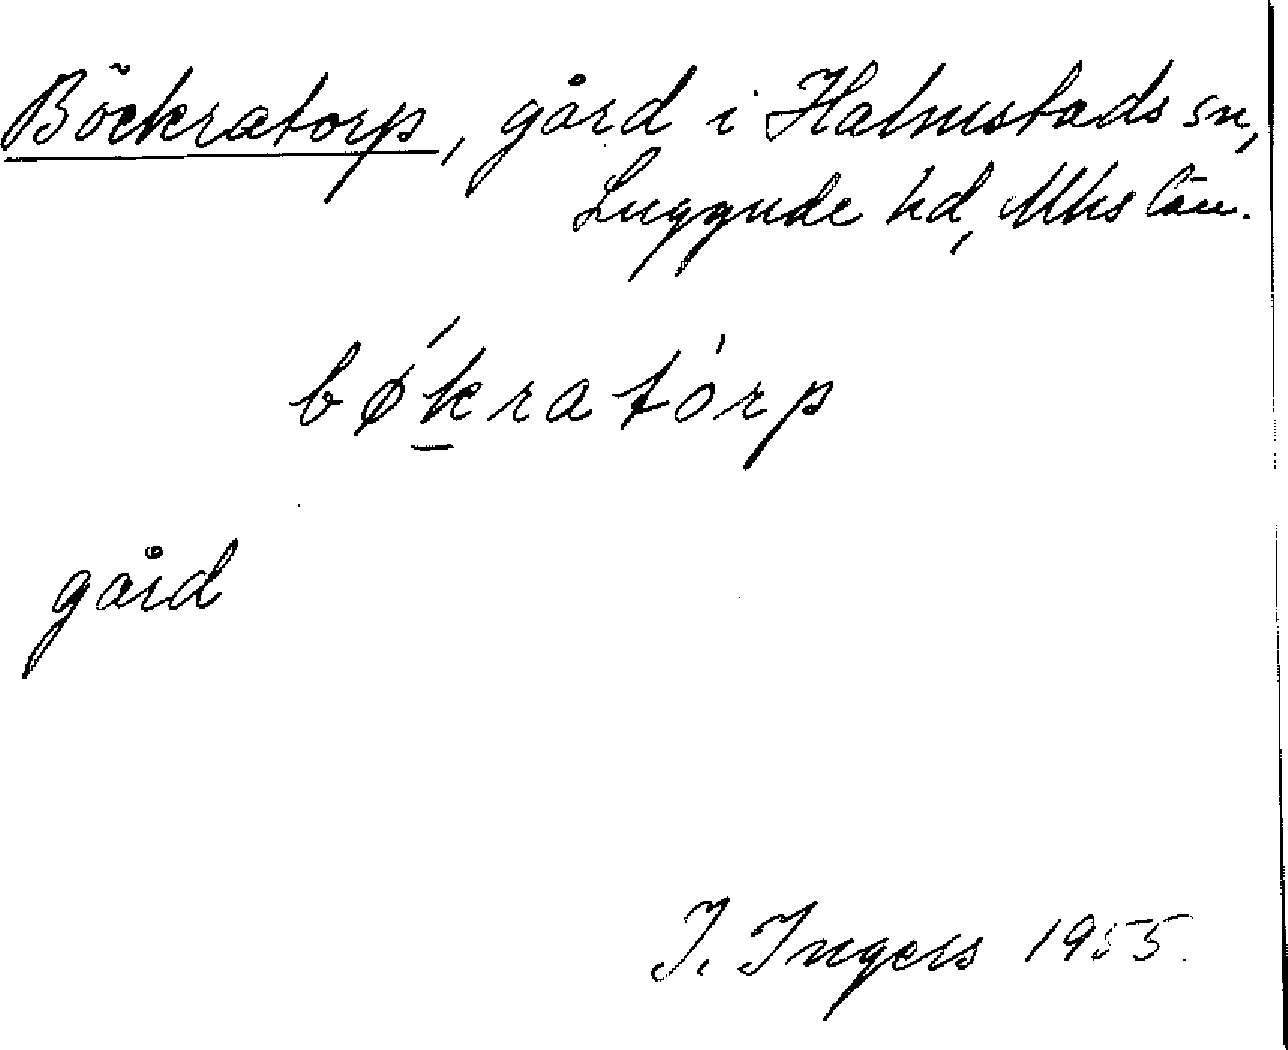 Böckratorp, gård i Halmstads sn,
Luggude hd, Mhs län.
bǿk̲ratórp
gård
I. Ingers 1955.